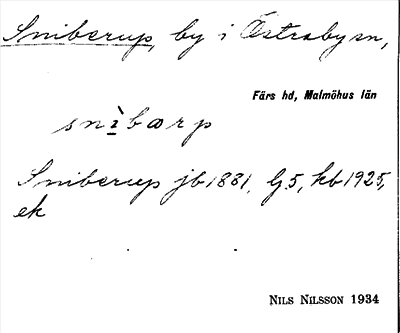 Sniberup, by i Östraby sn,
Färs hd, Malmöhus län
snìbarp
Sniberup jb 1881, Lj 5, kb 1925,
ek
NILS NILSSON 1934